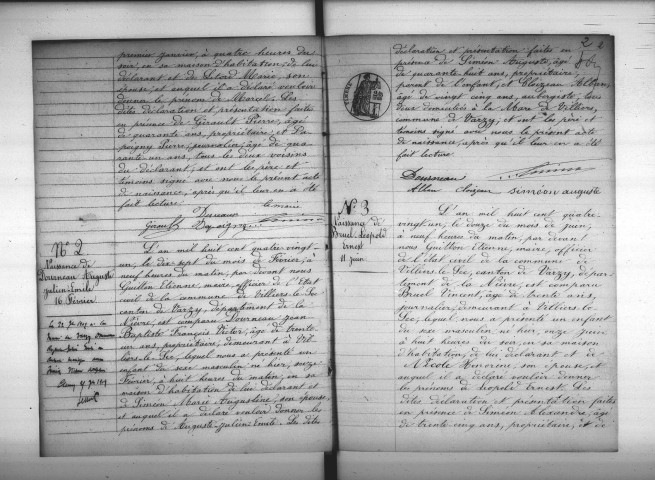 premier janvier, à quatre heures du
soir, en sa maison d'habitation, de lui
déclarant et de Marie, son
épouse, et auquel il a déclaré vouloir
donner le prénom de Marcel. Les
dites déclaration et présentation faites
en présence de Girault Pierre, âgé
de quarante ans, propriétaire, et
Pierre, journalier, âgé de qua
rante un ans, tous les deux voisins
du déclarant, et ont les père et
témoins signé avec nous le présent acte
de naissance, après qu'il leur en a été
fait lecture.
le maire
N° 2
Naissance de
Dourneau Auguste
Julien Emile
16 Février
L'an mil huit cent quatre vingt-
un, le dix sept du mois de Février, à
neuf heures du matin, par devant nous
Guillon Etienne, maire, officier de l'Etat
civil de la commune de Villiers-le-Sec
canton de Varzy, département de la
Nièvre, est comparu Dourneau Jean
Baptiste François Victor, âgé de trente
un ans, propriétaire, demeurant à Vil
liers-le-Sec, lequel nous a présenté un
enfant du sexe masculin né hier, seize
Février, à huit heures du matin, en sa
maison d'habitation de lui déclarant et
de Siméon Marie Augustine, son épouse,
et auquel il a déclaré vouloir donner les
prénoms d'Auguste-Julien-Emile. Les dites
2
déclaration et présentation faites en
présence de Siméon Auguste, âgé
de quarante huit ans, propriétaire,
parent de l'enfant, et Cloizeau Albin,
âgé de vingt cinq ans, aubergiste, tous
deux domiciliés à la Mare de Villiers,
commune de Varzy, et ont les père et
témoins signé avec nous le présent acte
de naissance, après qu'il leur en a été
fait lecture.
Dourneau
Albin Cloizeau Siméon auguste
N° 3
Naissance de
Bruel Léopold
Ernest
11 juin
L'an mil huit cent quatre-
vingt-un, le douze du mois de juin,
à neuf heures du matin, par devant
nous Guillon Etienne, maire, officier
de l'état civil de la commune de
Villiers-le-Sec, canton de Varzy, dépar-
tement de la Nièvre, est comparu
Bruel Vincent, âgé de trente ans,
journalier, demeurant à Villiers-le-
Sec, lequel nous a présenté un enfant
du sexe masculin né hier, onze juin
à huit heures du soir, en sa maison
d'habitation de lui déclarant et de
son épouse, et
auquel il a déclaré vouloir donner
les prénoms de Léopold Ernest. Les
dites déclaration et présentation faites
en présence de Siméon Alexandre, âgé
de trente cinq ans, propriétaire, et de